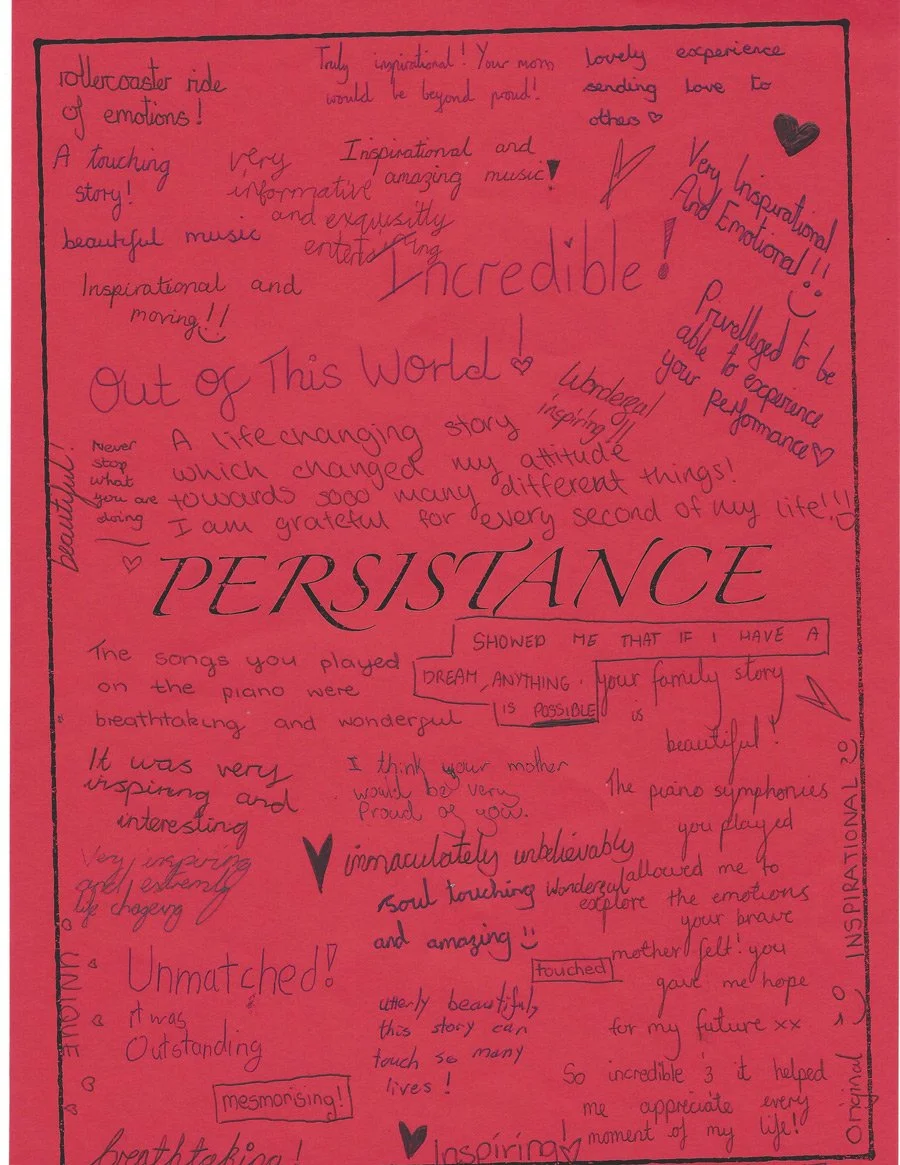 rollercoaster ride
of emotions!
Truly inspirational! Your mom
would be beyond proud!
lovely experience
sending love to
others
A touching
story!
very
informative
and exquisitly
enterta ing
Inspirational and
amazing music!
Very Inspirational
And Emotional!!
beautiful music
Incredible!
Inspirational and
moving!!
Privelleged to be
able to experience
your performance
Out Of This World!
Wonderful
inspiring!!
beautiful!
Never
stop
what
you are
doing
A life changing story
which changed my attitude
towards sooo many different things!
I am grateful for every second of my life!!!
PERSISTANCE
SHOWED ME THAT IF I HAVE A
DREAM, ANYTHING.
IS POSSIBLE
The songs you played
on the piano were
breathtaking and wonderful
your family story
is
beautiful!
It was very
inspiring and
interesting
I think your mother
would be very
Proud of you.
The piano symphonies
you played
allowed me to
explore the emotions
your brave
mother felt! you
gave me hope
for my future xx
Very inspiring
and extremly
life chageing
immaculately unbelievably
soul touching wonderful
and amazing
touched
Unmatched!
it was
Outstanding
utterly beautiful,
this story can
touch so many
lives!
UNIQUE
mesmorising!
So incredible & it helped
me appreciate every
moment of my life!
INSPIRATIONAL
Original
breathtaking!
Inspiring!